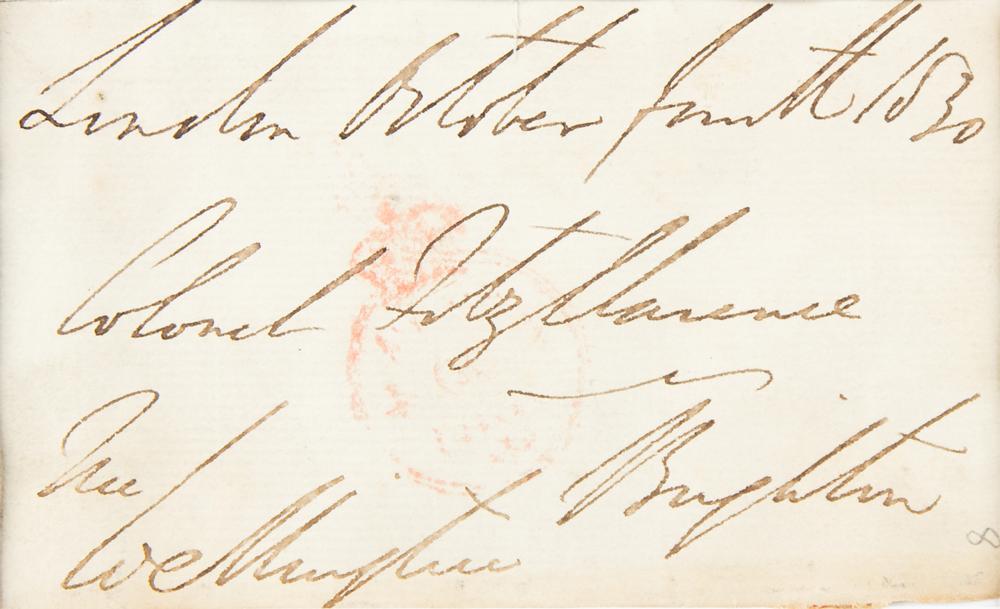 London October fourth 1830
Colonel FitzClarence
Brighton
Wellington